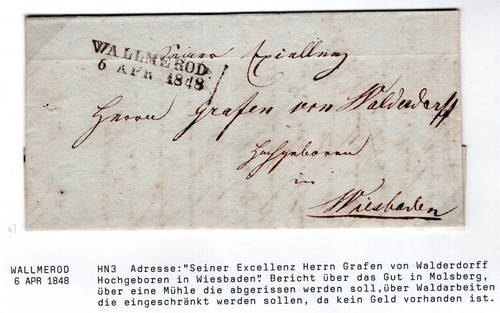 WALLMEROD
6 APR 1848
Seiner Exzellenz
Herrn Grafen von Walderdorff
Hochgeboren
in
Wiesbaden
a)
WALLMEROD
6 APR 1848
HN3 Adresse:"Seiner Excellenz Herrn Grafen von Walderdorff
Hochgeboren in Wiesbaden". Bericht über das Gut in Molsberg,
über eine Mühle die abgerissen werden soll,über Waldarbeiten
die eingeschränkt werden sollen, da kein Geld vorhanden ist.